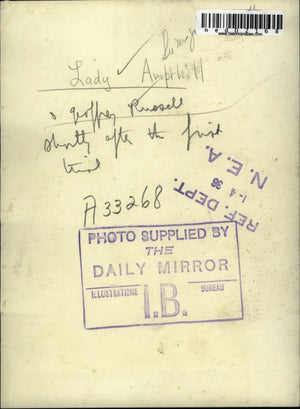 Lady Ampthill
& Geoffrey Russell
shortly after the first
trial
A33268
REF. DEPT.
1-4 36
N. E. A.
PHOTO SUPPLIED BY
THE
DAILY MIRROR
ILLUSTRATIONS BUREAU
I.B.